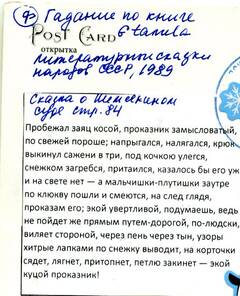 Гадание по книге
POST CARD
открытка
Литературные сказки
народов СССР, 1989
Сказка о Шемякином
суде стр. 84
Пробежал заяц косой, проказник замысловатый,
по свежей пороше; напрыгался, налягался, крюк
выкинул сажени в три, под кочкою улегся,
снежком загребся, притаился, казалось бы его уж
и на свете нет — а мальчишки-плутишки заутре
по клюкву пошли и смеются, на след глядя,
проказам его; экой увертливой, подумаешь, ведь
не пойдет же прямым путем-дорогой, по-людски,
виляет стороной, через пень через тын, узоры
хитрые лапками по снежку выводит, на корточки
сядет, лягнет, притопнет, петлю закинет — экой
куцой проказник!